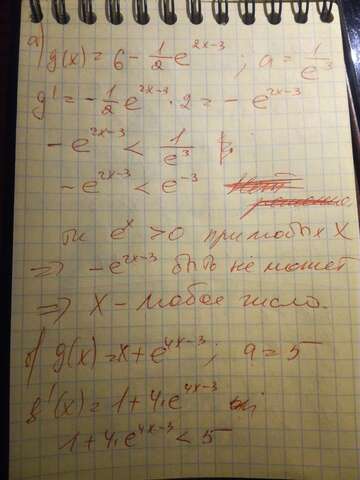 а) g(x) = 6 - 1/2 e^{2x-3} ; a = 1/e^3
g' = - 1/2 e^{2x-3} · 2 = - e^{2x-3}
- e^{2x-3} < 1/e^3
- e^{2x-3} < e^{-3}
тк e^x > 0 при любых X
=> - e^{2x-3} быть не может
=> X - любое число.
б) g(x) = x + e^{4x-3} ; a = 5
g'(x) = 1 + 4·e^{4x-3}
1 + 4·e^{4x-3} < 5